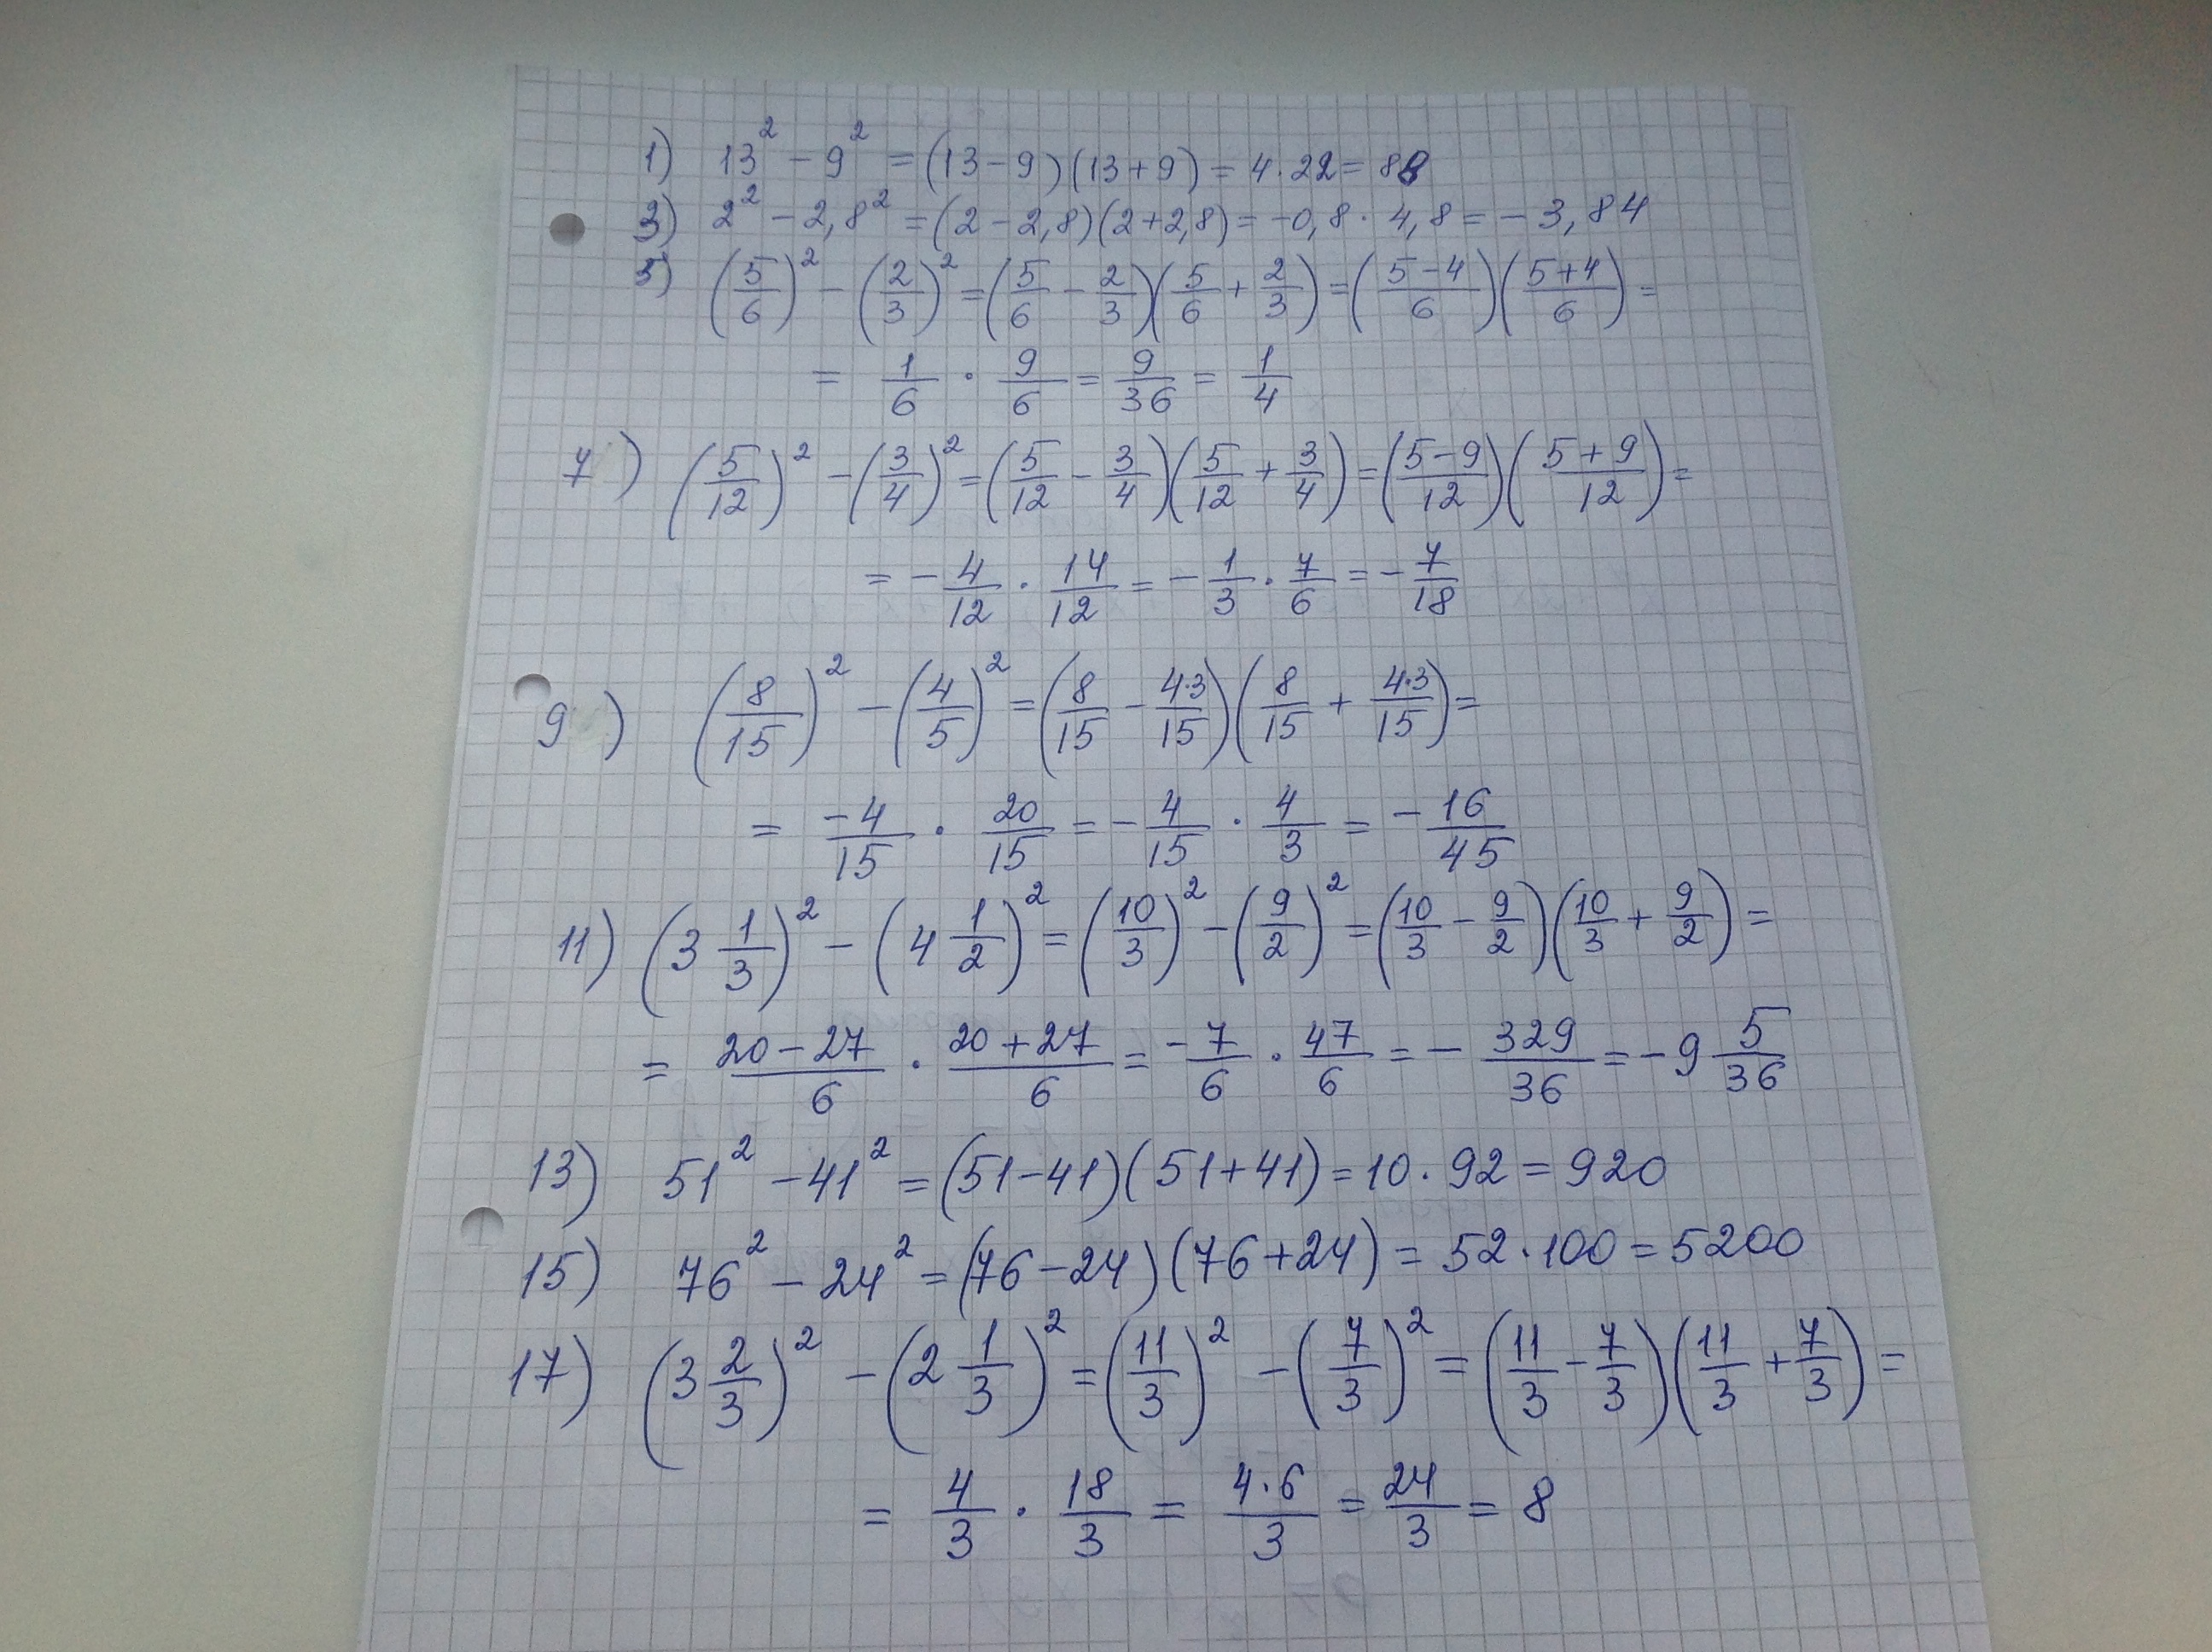 1) 13² − 9² = (13−9)(13+9) = 4·22 = 88
3) 2² − 2,8² = (2−2,8)(2+2,8) = −0,8·4,8 = −3,84
5) (5/6)² − (2/3)² = (5/6 − 2/3)(5/6 + 2/3) = ((5−4)/6)((5+4)/6) =
= 1/6 · 9/6 = 9/36 = 1/4
7) (5/12)² − (3/4)² = (5/12 − 3/4)(5/12 + 3/4) = ((5−9)/12)((5+9)/12) =
= −4/12 · 14/12 = −1/3 · 7/6 = −7/18
9) (8/15)² − (4/5)² = (8/15 − 4·3/15)(8/15 + 4·3/15) =
= −4/15 · 20/15 = −4/15 · 4/3 = −16/45
11) (3 1/3)² − (4 1/2)² = (10/3)² − (9/2)² = (10/3 − 9/2)(10/3 + 9/2) =
= (20−27)/6 · (20+27)/6 = −7/6 · 47/6 = −329/36 = −9 5/36
13) 51² − 41² = (51−41)(51+41) = 10·92 = 920
15) 76² − 24² = (76−24)(76+24) = 52·100 = 5200
17) (3 2/3)² − (2 1/3)² = (11/3)² − (7/3)² = (11/3 − 7/3)(11/3 + 7/3) =
= 4/3 · 18/3 = 4·6/3 = 24/3 = 8